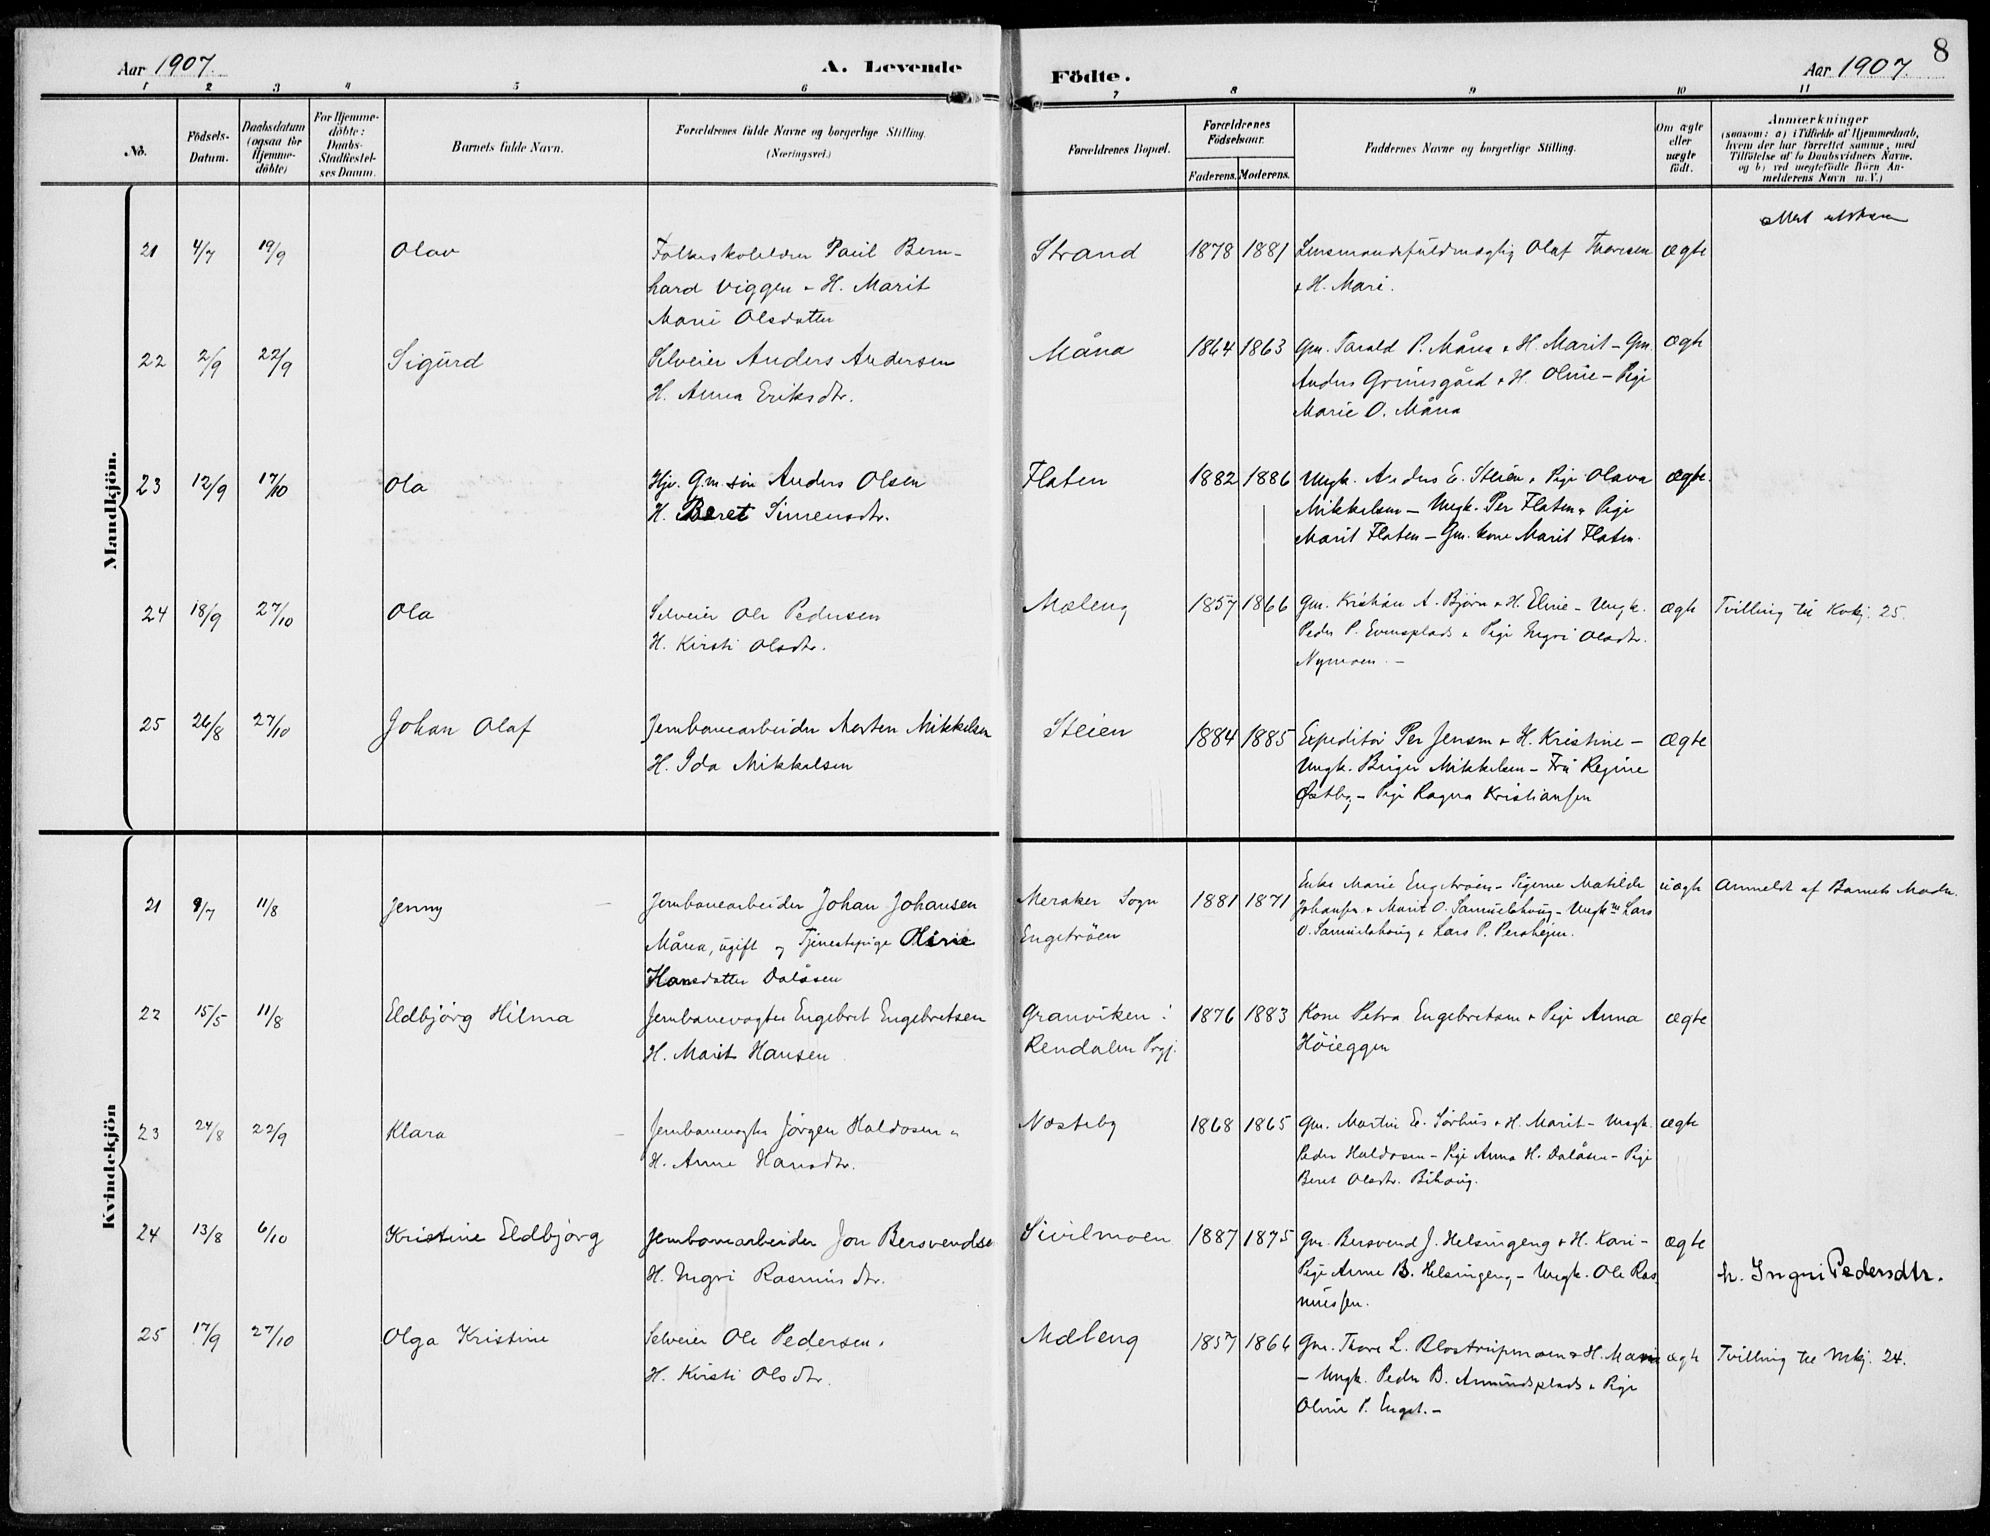 8
Aar 1907.
A. Levende
Födte.
Aar 1907.
1 2 3 4 5 6 7 8 9 10 11
No.
Födsels-
Datum.
Daabsdatum
(ogsaa for
Hjemme-
döbte)
For Hjemme-
döbte:
Daabs-
Stadfæstel-
ses Datum.
Barnets fulde Navn.
Forældrenes fulde Navne og borgerlige Stilling.
(Næringsvei.)
Forældrenes Bopæl.
Forældrenes
Födselsaar.
Faderens. Moderens.
Faddernes Navne og borgerlige Stilling.
Om ægte
eller
uægte
födt.
Anmærkninger
(saasom: a) i Tilfælde af Hjemmedaab,
hvem der har forrettet samme, med
Tilföielse af to Daabsvidners Navne,
og b) ved uægtefödte Börn An-
melderens Navn m. V.)
Mandkjön.
21 4/7 19/9 Olav Folkeskolelærer Paul Bern- Strand 1878 1881 Lensmandsfuldmægtig Olaf Thoresen ægte
hard Viggen - H. Marit + H. Mari.
Marie Olsdatter
22 2/9 22/9 Sigurd Selveier Anders Andersen Måna 1864 1863 Gm. Tarald P. Måna + H. Marit - Gm. ægte
H. Anna Eriksdtr. Anders Grimsgård + H. Oline - Pige
Marie O. Måna
23 12/9 17/10 Ola Hjv. Gm. søn Anders Olsen Flaten 1882 1886 Ungk. Anders E. Steien + Pige Olava ægte.
H. Beret Simensdtr. Mikkelsen - Ungk. Per Flaten + Pige
Marit Flaten - Gm. kone Marit Flaten.
24 18/9 27/10 Ola Selveier Ole Pedersen Mæleng 1857 1866 Gm. Kristian A. Bjørn + H. Eline - Ungk. ægte Tvilling til Kvkj. 25.
H. Kirsti Olsdtr. Peder P. Evensplads + Pige Ingri Olsdtr.
Nymoen. -
25 26/8 27/10 Johan Olaf Jernbanearbeider Morten Mikkelsen Steien 1884 1885 Expeditør Per Jensen + H. Kristine - ægte
H. Ida Mikkelsen Ungk. Birger Mikkelsen - Fru Regine
Østby - Pige Ragna Kristiansen
Kvindekjön
21 9/7 11/8 Jenny Jernbanearbeider Johan Johansen Meraker Sogn 1881 1871 Enke Marie Engetrøen - Pigerne Matilde uægte Anmeldt af Barnets Moder.
Måna, ugift og Tjenestepige Engetrøen Johansen + Marit O. Samuelshoug - Ungk. Lars
Hansdatter Dalåsen O. Samuelshoug + Lars P.
22 15/5 11/8 Eldbjörg Hilma Jernbanevogter Engebret Engebretsen Granviken i 1876 1883 Kone Petra Engebretsen + Pige Anna ægte
H. Marit Hansen Rendalen Prgj. Höieggen
23 24/8 22/9 Klara Jernbanevogter Jørgen Haldosen Næsteby 1868 1865 Gm. Martin E. Sørhus + H. Marit - Ungk. ægte
H. Anne Hansdtr. Peder Haldosen - Pige Anna H. Dalåsen - Pige
Beret Olsdtr. Bihoug.
24 13/8 6/10 Kristine Eldbjørg Jernbanearbeider Jon Bersvendse Sivilmoen 1887 1875 Gm. Bersvend J. Helsingeng + H. Kari - ægte
H. Ingri Rasmusdtr. Pige Anne B. Helsingeng - Ungk. Ole Ras- h. Ingri Pedersdtr.
mussen.
25 17/9 27/10 Olga Kristine Selveier Ole Pedersen. Mæleng 1857 1866 Gm. Thore L. + H. Marie ægte Tvilling til Mkj. 24.
H. Kirsti Olsdtr. - Ungk. Peder B. Amundsplads + Pige
Oline P. Enget. -